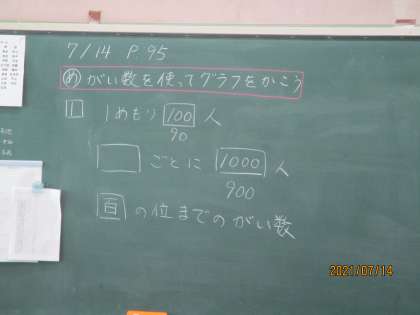 7/14 P.95
め がい数を使ってグラフをかこう
1 1めもり 100 人
90
ごとに 1000 人
900
百 の位までのがい数
2021/07/14